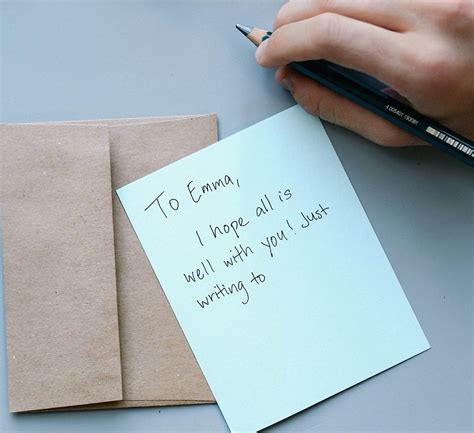 To Emma,
I hope all is
well with you! Just
writing to